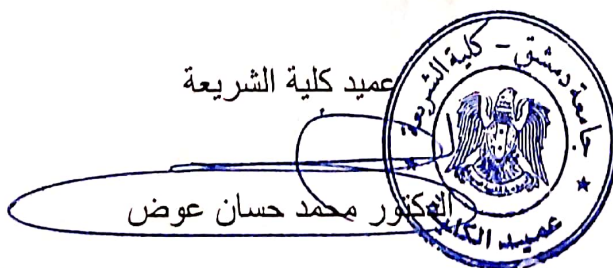 عميد كلية الشريعة
الدكتور محمد حسان عوض
جامعة دمشق - كلية الشريعة
عميد الكلية